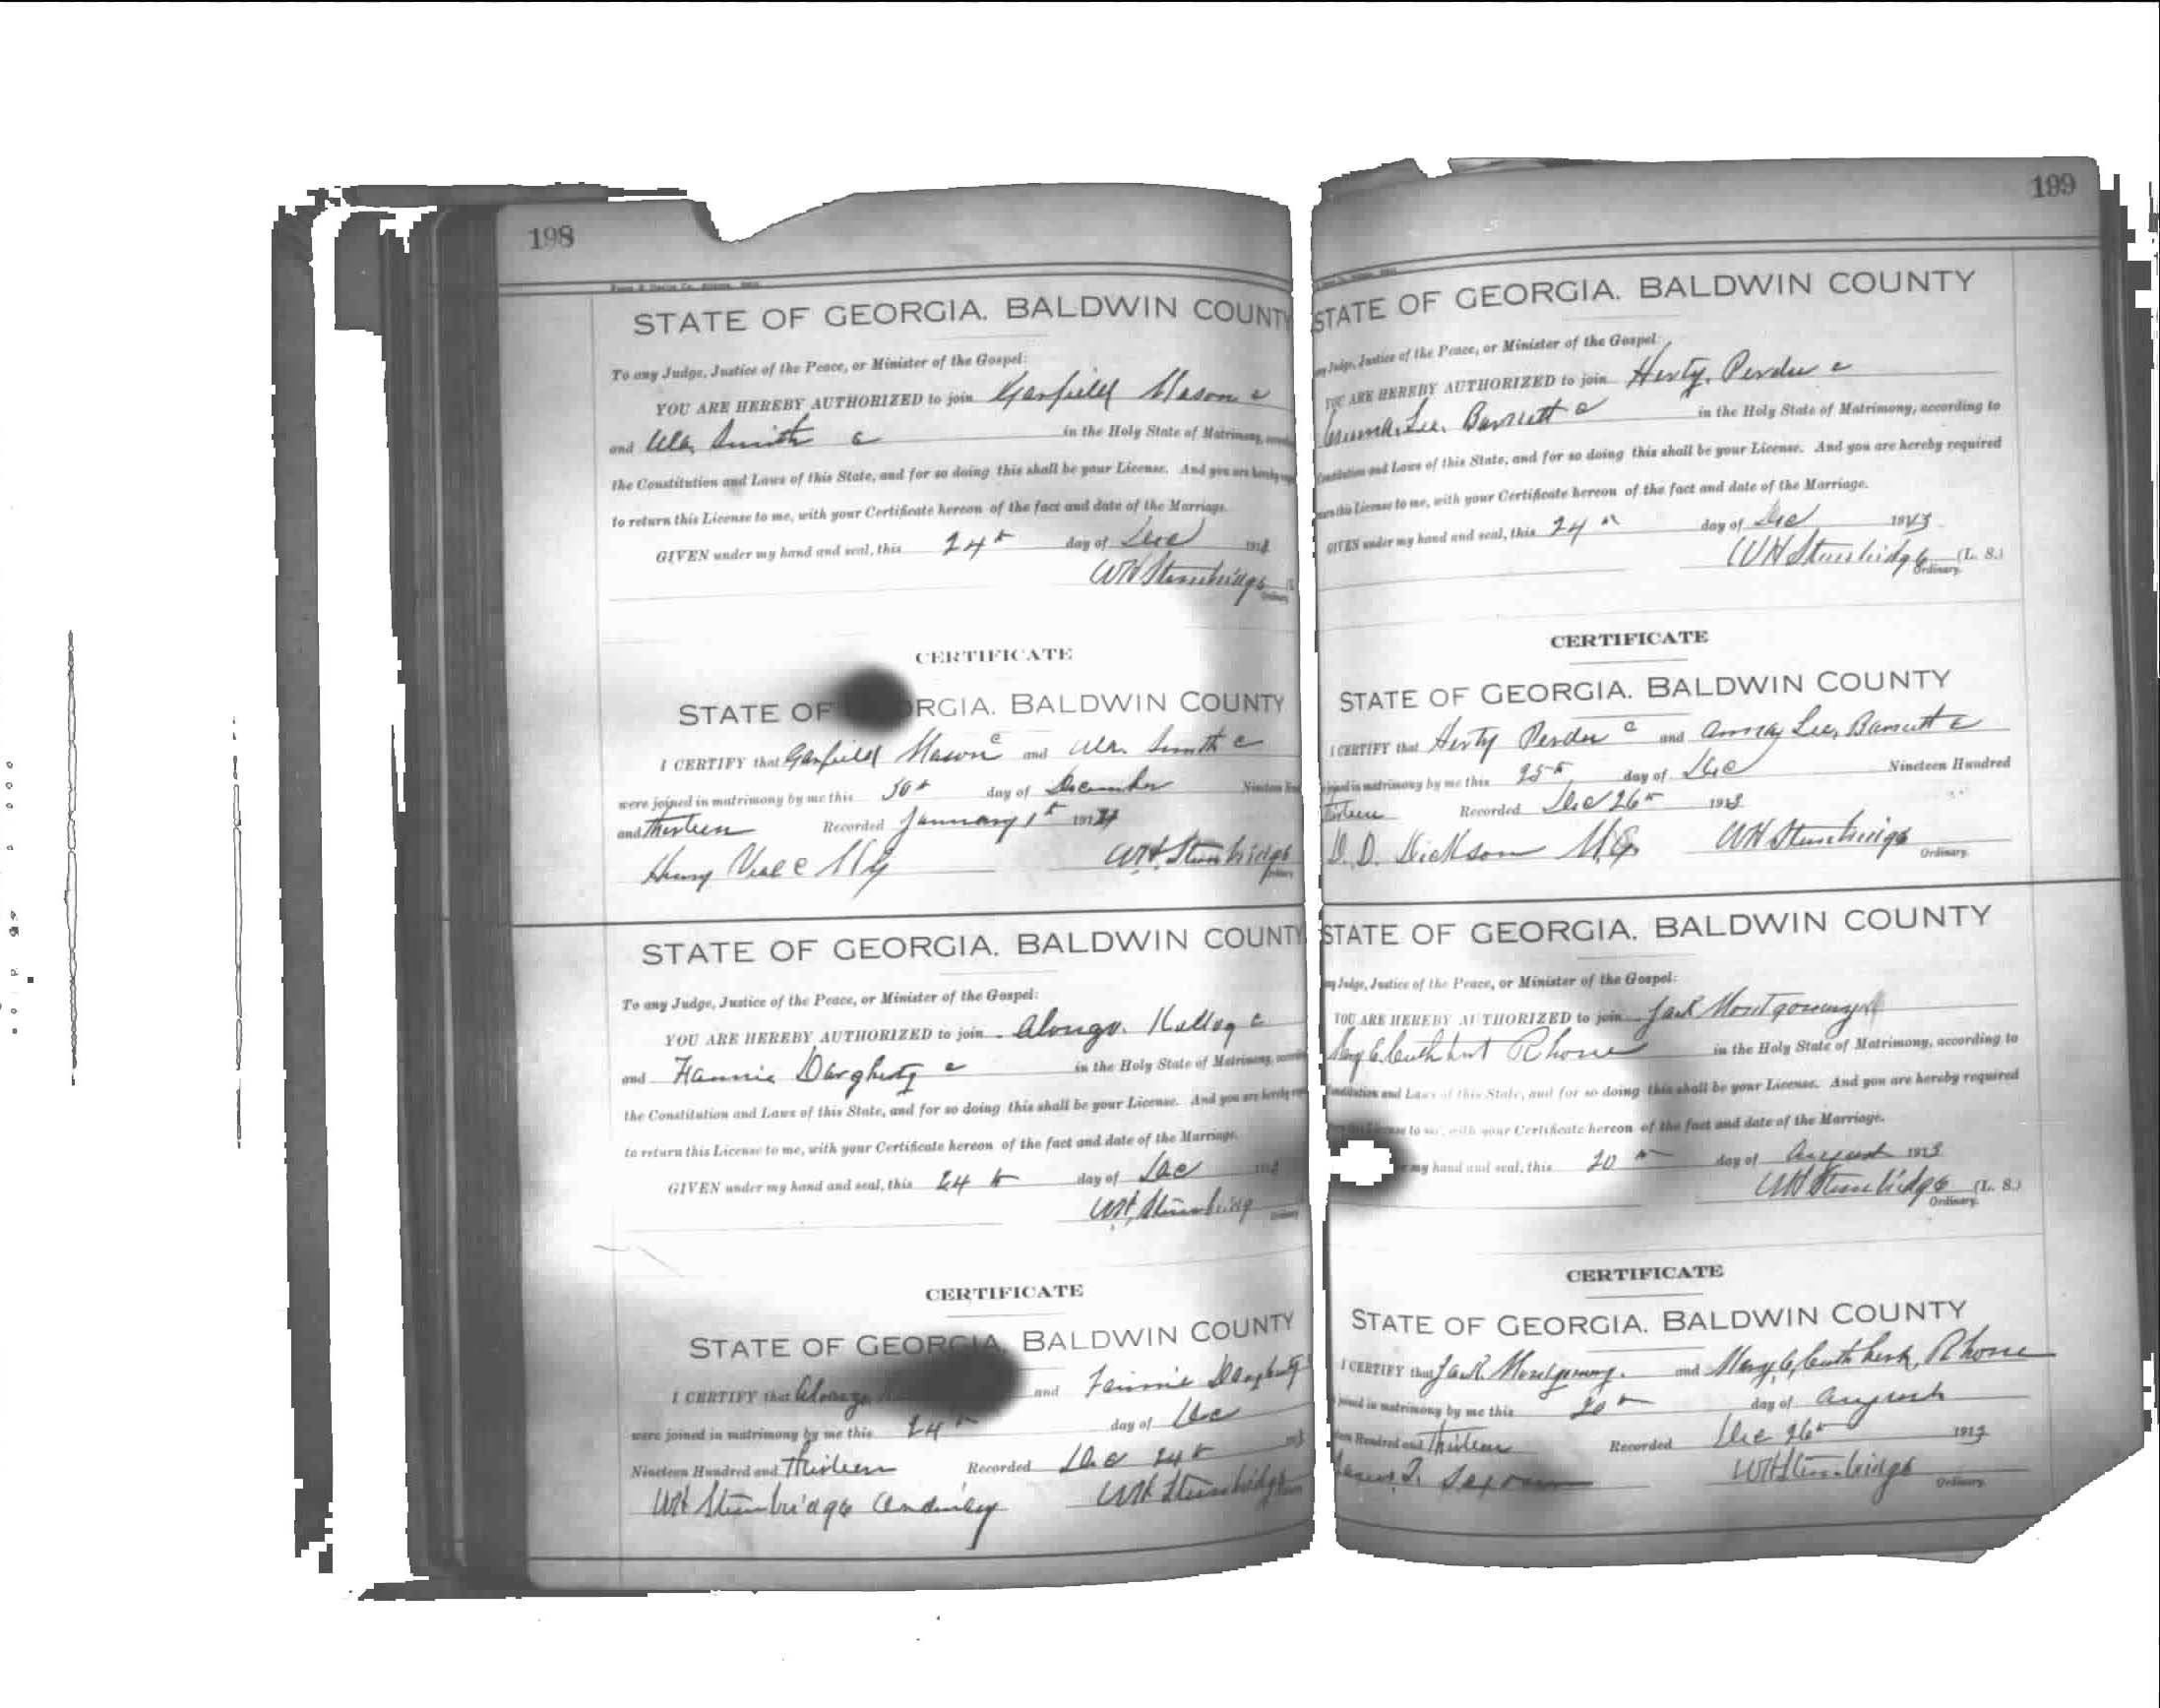 198
STATE OF GEORGIA. BALDWIN COUNTY
To any Judge, Justice of the Peace, or Minister of the Gospel:
YOU ARE HEREBY AUTHORIZED to join Garfield Mason c
and Ula Smith c in the Holy State of Matrimony,
the Constitution and Laws of this State, and for so doing this shall be your License. And you are hereby
to return this License to me, with your Certificate hereon of the fact and date of the Marriage.
GIVEN under my hand and seal, this 24th day of Dec 191
WH Stembridge
Ordinary
CERTIFICATE
STATE OF RGIA. BALDWIN COUNTY
I CERTIFY that Garfield Mason c and Ula Smith c
were joined in matrimony by me this 30th day of December Nineteen
and thirteen Recorded January 1st 1914
Henry Veal c MG WH Stembridge
STATE OF GEORGIA. BALDWIN COUNTY
To any Judge, Justice of the Peace, or Minister of the Gospel:
YOU ARE HEREBY AUTHORIZED to join Alonzo Kellog c
and Fannie Darghety c in the Holy State of Matrimony,
the Constitution and Laws of this State, and for so doing this shall be your License. And you are hereby
to return this License to me, with your Certificate hereon of the fact and date of the Marriage.
GIVEN under my hand and seal, this 24th day of Dec
WH Stembridg
CERTIFICATE
STATE OF GEORGIA. BALDWIN COUNTY
I CERTIFY that Alonzo and Fannie
were joined in matrimony by me this 24th day of Dec
Nineteen Hundred and thirteen Recorded Dec 24th
WH Stembridge Ordinary WH Stembridge
199
STATE OF GEORGIA. BALDWIN COUNTY
Judge, Justice of the Peace, or Minister of the Gospel:
YOU ARE HEREBY AUTHORIZED to join Herty Perdue c
Lee Barnett c in the Holy State of Matrimony, according to
Constitution and Laws of this State, and for so doing this shall be your License. And you are hereby required
this License to me, with your Certificate hereon of the fact and date of the Marriage.
GIVEN under my hand and seal, this 24th day of Dec 1913
WH Stembridge (L. S.)
Ordinary.
CERTIFICATE
STATE OF GEORGIA. BALDWIN COUNTY
I CERTIFY that Herty Perdue c and Anna Lee Barnett c
joined in matrimony by me this 25th day of Dec Nineteen Hundred
thirteen Recorded Dec 26th 1913
D. D. Dickson M.G. WH Stembridge
Ordinary.
STATE OF GEORGIA. BALDWIN COUNTY
Judge, Justice of the Peace, or Minister of the Gospel:
YOU ARE HEREBY AUTHORIZED to join Jack Montgomery
Mary C. Cuthbert Rhone in the Holy State of Matrimony, according to
Constitution and Laws of this State, and for so doing this shall be your License. And you are hereby required
to me, with your Certificate hereon of the fact and date of the Marriage.
my hand and seal, this 20th day of August 1913
WH Stembridge (L. S.)
Ordinary.
CERTIFICATE
STATE OF GEORGIA. BALDWIN COUNTY
I CERTIFY that Jack Montgomery and Mary C. Cuthbert Rhone
joined in matrimony by me this 20th day of August
Hundred and Thirteen Recorded Dec 26th 1913
WH Stembridge
Ordinary.